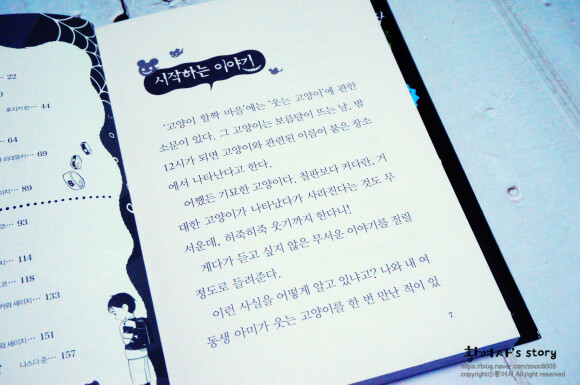 22
후지키린… 44
64
이데유키… 69
89
93
114
118
카와 세이지… 133
151
나스다 준… 157
시작하는 이야기
'고양이 할짝 마을'에는 '웃는 고양이'에 관한
소문이 있다. 그 고양이는 보름달이 뜨는 날, 밤
12시가 되면 고양이와 관련된 이름이 붙은 장소
에서 나타난다고 한다.
어쨌든 기묘한 고양이다. 칠판보다 커다란, 거
대한 고양이가 나타났다가 사라진다는 것도 무
서운데, 히죽히죽 웃기까지 한다니!
게다가 듣고 싶지 않은 무서운 이야기를 질릴
정도로 들려준다.
이런 사실을 어떻게 알고 있냐고? 나와 내 여
동생 아미가 웃는 고양이를 한 번 만난 적이 있
7
황여사's story
https://blog.naver.com/zooc8005
copyrightⓒ황여사 All right reserved